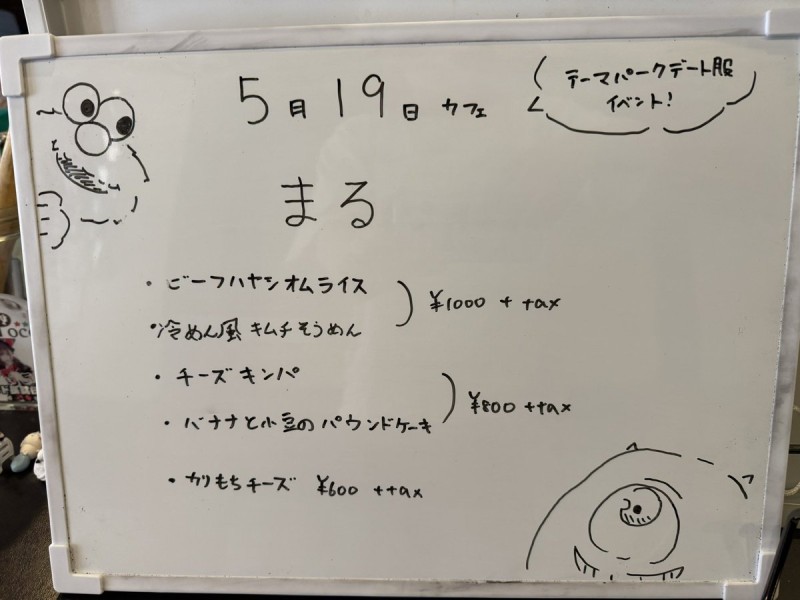 5月19日 カフェ
テーマパークデート服
イベント!
まる
・ビーフハヤシオムライス
・冷めん風キムチそうめん
¥1000 + tax
・チーズキンパ
・バナナと小豆のパウンドケーキ
¥800 + tax
・カリもちチーズ ¥600 + tax